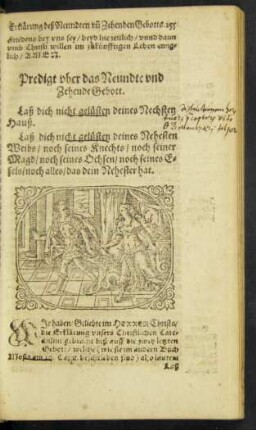 Erklärung deß Neundten vñ Zehenden Gebotts. 295
friedens bey vns sey / beyd hie zeitlich / vnnd dann
vmb Christi willen im zukünfftigen Leben ewig-
lich / AMEN.
Predigt vber das Neundte vnd
Zehende Gebott.
Laß dich nicht gelüsten deines Nechsten
Hauß.
Laß dich nicht gelüsten deines Nehesten
Weibs / noch seines Knechts / noch seiner
Magd / noch seines Ochsen / noch seines E-
sels / noch alles / das dein Nehester hat.
WIr haben Geliebte im HERREN Christo /
die Erklärung vnsers Christlichen Cate-
chismi gebracht biß auff die zwey letzten
Gebott / welche im andern Buch
Mosis am 20. Cap. beschrieben / also lauten:
Laß